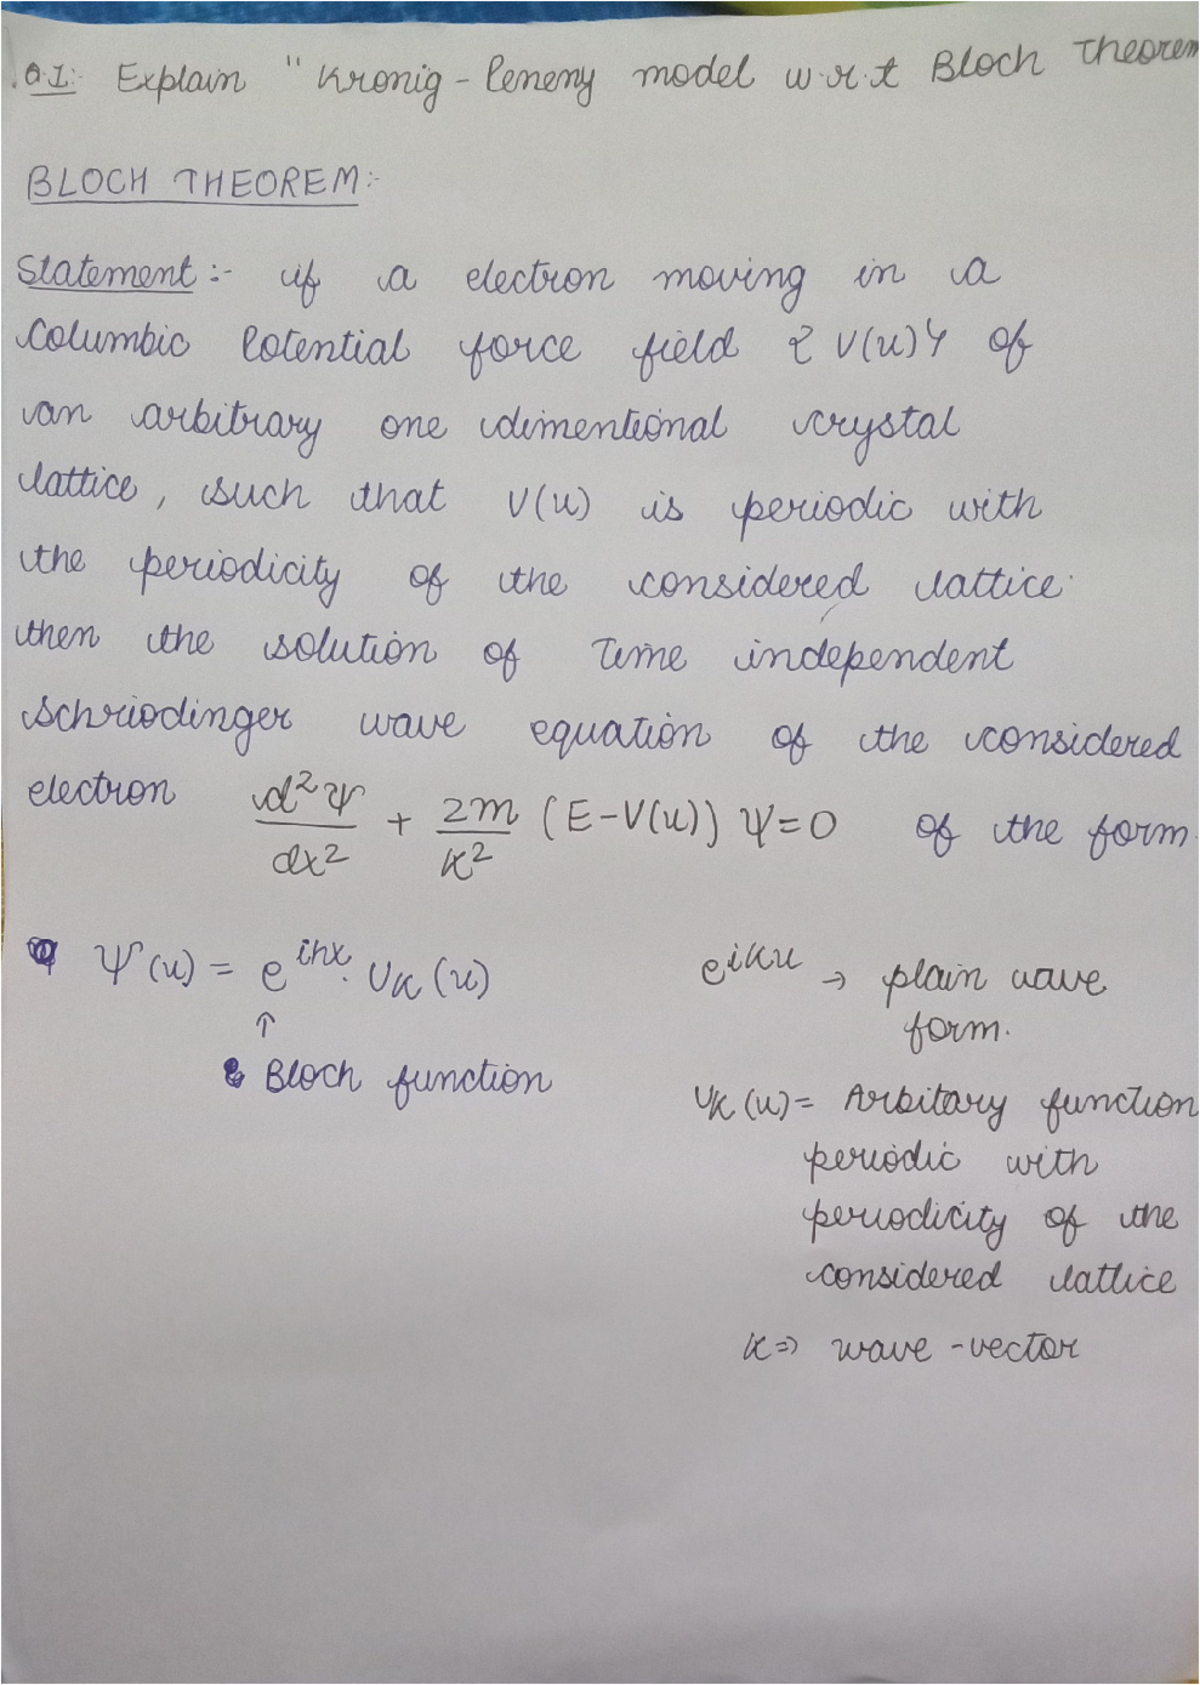 Q.1:- Explain " Kronig - Peneny model w.r.t Bloch Theorem
BLOCH THEOREM:-
Statement :- if a electron moving in a
Columbic Potential force field { V(x) } of
an arbitrary one dimentional crystal
lattice, such that V(x) is periodic with
the periodicity of the considered lattice.
then the solution of Time independent
Schriodinger wave equation of the considered
electron d²Ψ/dx² + 2m/ħ² (E-V(x)) Ψ=0 of the form
Ψ(x) = e^{ikx}. U_K(x)
↑
Bloch function
e^{iKx} → plain wave
form.
U_K(x) = Arbitary function
periodic with
periodicity of the
considered lattice
K => wave - vector